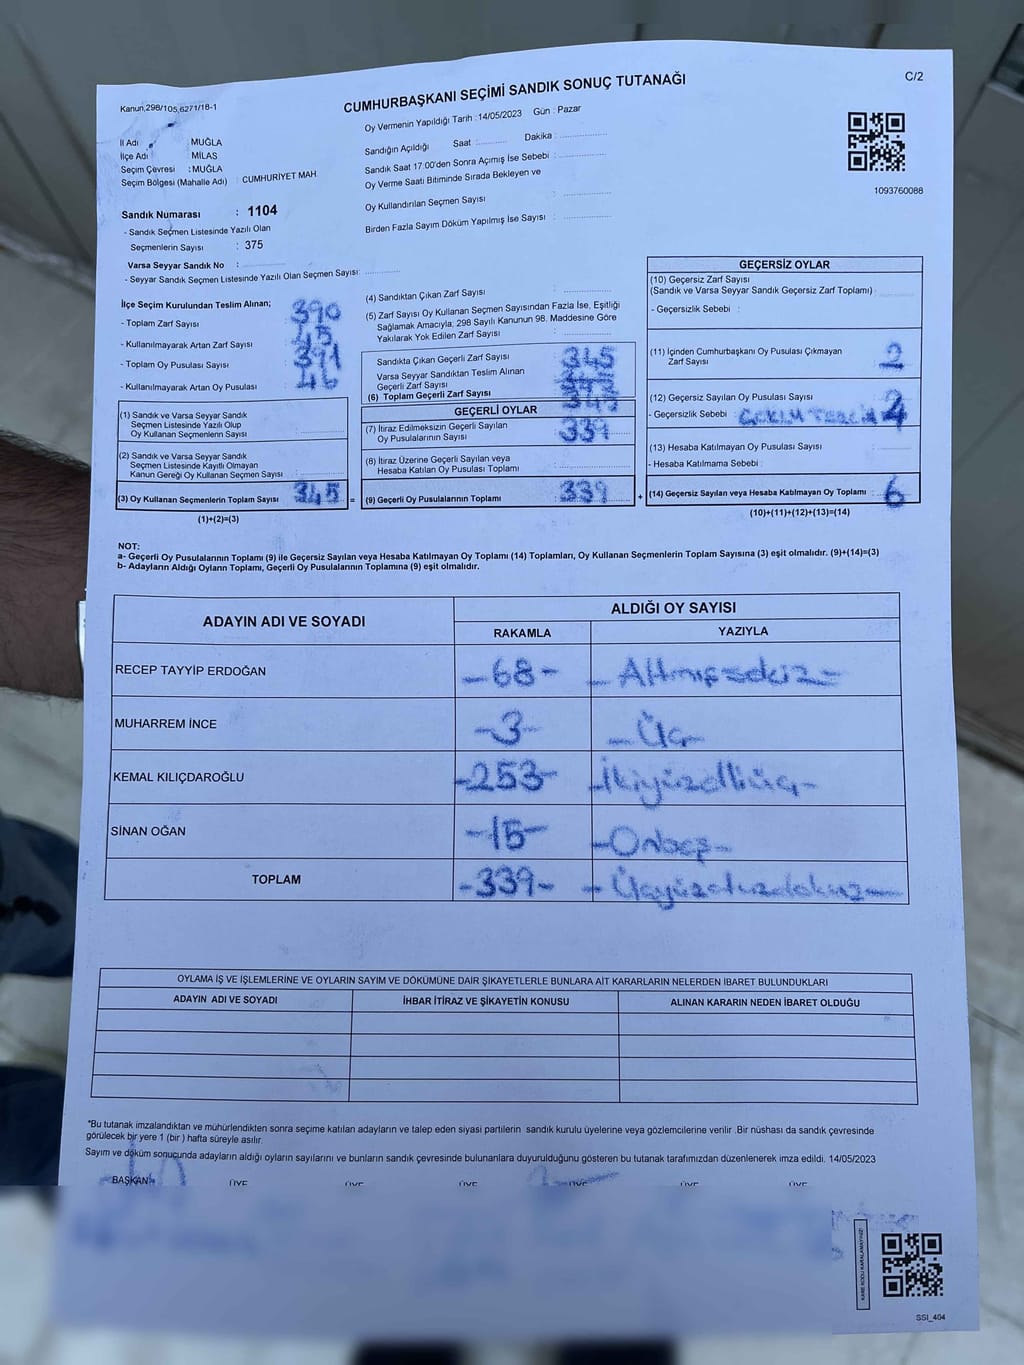 Kanun,298/105,6271/18-1
CUMHURBAŞKANI SEÇİMİ SANDIK SONUÇ TUTANAĞI
C/2
Oy Vermenin Yapıldığı Tarih : 14/05/2023 Gün : Pazar
İl Adı : MUĞLA
İlçe Adı : MİLAS
Seçim Çevresi : MUĞLA
Seçim Bölgesi (Mahalle Adı) CUMHURİYET MAH.
Sandık Numarası : 1104
- Sandık Seçmen Listesinde Yazılı Olan
Seçmenlerin Sayısı : 375
Varsa Seyyar Sandık No :
- Seyyar Sandık Seçmen Listesinde Yazılı Olan Seçmen Sayısı:
Sandığın Açıldığı Saat : Dakika :
Sandık Saat 17:00'den Sonra Açımış İse Sebebi :
Oy Verme Saati Bitiminde Sırada Bekleyen ve
Oy Kullandırılan Seçmen Sayısı :
Birden Fazla Sayım Döküm Yapılmış İse Sayısı :
1093760088
İlçe Seçim Kurulundan Teslim Alınan;
- Toplam Zarf Sayısı : 390
- Kullanılmayarak Artan Zarf Sayısı : 45
- Toplam Oy Pusulası Sayısı : 391
- Kullanılmayarak Artan Oy Pusulası : 46
(1) Sandık ve Varsa Seyyar Sandık
Seçmen Listesinde Yazılı Olup
Oy Kullanan Seçmenlerin Sayısı :
(2) Sandık ve Varsa Seyyar Sandık
Seçmen Listesinde Kayıtlı Olmayan
Kanun Gereği Oy Kullanan Seçmen Sayısı :
(3) Oy Kullanan Seçmenlerin Toplam Sayısı : 345 =
(1)+(2)=(3)
(4) Sandıktan Çıkan Zarf Sayısı :
(5) Zarf Sayısı Oy Kullanan Seçmen Sayısından Fazla İse, Eşitliği
Sağlamak Amacıyla; 298 Sayılı Kanunun 98. Maddesine Göre
Yakılarak Yok Edilen Zarf Sayısı :
Sandıkta Çıkan Geçerli Zarf Sayısı : 345
Varsa Seyyar Sandıktan Teslim Alınan
Geçerli Zarf Sayısı :
(6) Toplam Geçerli Zarf Sayısı :
GEÇERLİ OYLAR
(7) İtiraz Edilmeksizin Geçerli Sayılan
Oy Pusulalarının Sayısı : 339
(8) İtiraz Üzerine Geçerli Sayılan veya
Hesaba Katılan Oy Pusulası Toplamı :
(9) Geçerli Oy Pusulalarının Toplamı : 339 +
GEÇERSİZ OYLAR
(10) Geçersiz Zarf Sayısı
(Sandık ve Varsa Seyyar Sandık Geçersiz Zarf Toplamı) :
- Geçersizlik Sebebi :
(11) İçinden Cumhurbaşkanı Oy Pusulası Çıkmayan
Zarf Sayısı : 2
(12) Geçersiz Sayılan Oy Pusulası Sayısı :
- Geçersizlik Sebebi :
(13) Hesaba Katılmayan Oy Pusulası Sayısı :
- Hesaba Katılmama Sebebi :
(14) Geçersiz Sayılan veya Hesaba Katılmayan Oy Toplamı : 6
(10)+(11)+(12)+(13)=(14)
NOT:
a- Geçerli Oy Pusulalarının Toplamı (9) ile Geçersiz Sayılan veya Hesaba Katılmayan Oy Toplamı (14) Toplamları, Oy Kullanan Seçmenlerin Toplam Sayısına (3) eşit olmalıdır. (9)+(14)=(3)
b- Adayların Aldığı Oyların Toplamı, Geçerli Oy Pusulalarının Toplamına (9) eşit olmalıdır.
ADAYIN ADI VE SOYADI
ALDIĞI OY SAYISI
RAKAMLA YAZIYLA
RECEP TAYYİP ERDOĞAN -68- -Altmışsekiz-
MUHARREM İNCE -3- -Üç-
KEMAL KILIÇDAROĞLU -253- -İkiyüzelliüç-
SİNAN OĞAN -15- -Onbeş-
TOPLAM -339- -Üçyüzotuzdokuz-
OYLAMA İŞ VE İŞLEMLERİNE VE OYLARIN SAYIM VE DÖKÜMÜNE DAİR ŞİKAYETLERLE BUNLARA AİT KARARLARIN NELERDEN İBARET BULUNDUKLARI
ADAYIN ADI VE SOYADI İHBAR İTİRAZ VE ŞİKAYETİN KONUSU ALINAN KARARIN NEDEN İBARET OLDUĞU
*Bu tutanak imzalandıktan ve mühürlendikten sonra seçime katılan adayların ve talep eden siyasi partilerin sandık kurulu üyelerine veya gözlemcilerine verilir .Bir nüshası da sandık çevresinde
görülecek bir yere 1 (bir ) hafta süreyle asılır.
Sayım ve döküm sonucunda adayların aldığı oyların sayılarını ve bunların sandık çevresinde bulunanlara duyurulduğunu gösteren bu tutanak tarafımızdan düzenlenerek imza edildi. 14/05/2023
BAŞKAN ÜYE ÜYE ÜYE ÜYE ÜYE ÜYE
KARE KODU KARALAMAYINIZ!
SSI_404